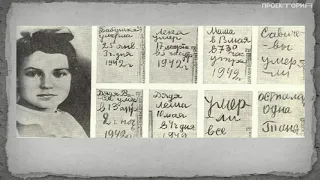 ПРОЕКТОРИЯ
Бабушка
умерла
25 янв.
1942 г.
Лека
умер
17 марта
1942 г.
Миша
в 13 мая
в 7.30
час
утра
1942 г.
Савиче-
вы
умер-
ли
Дядя
в 13 апр
2 г ноч
1942
Дядя
Леша
10 мая
в 4 ч дня
1942
Умер
ли
все
Осталась
одна
Таня